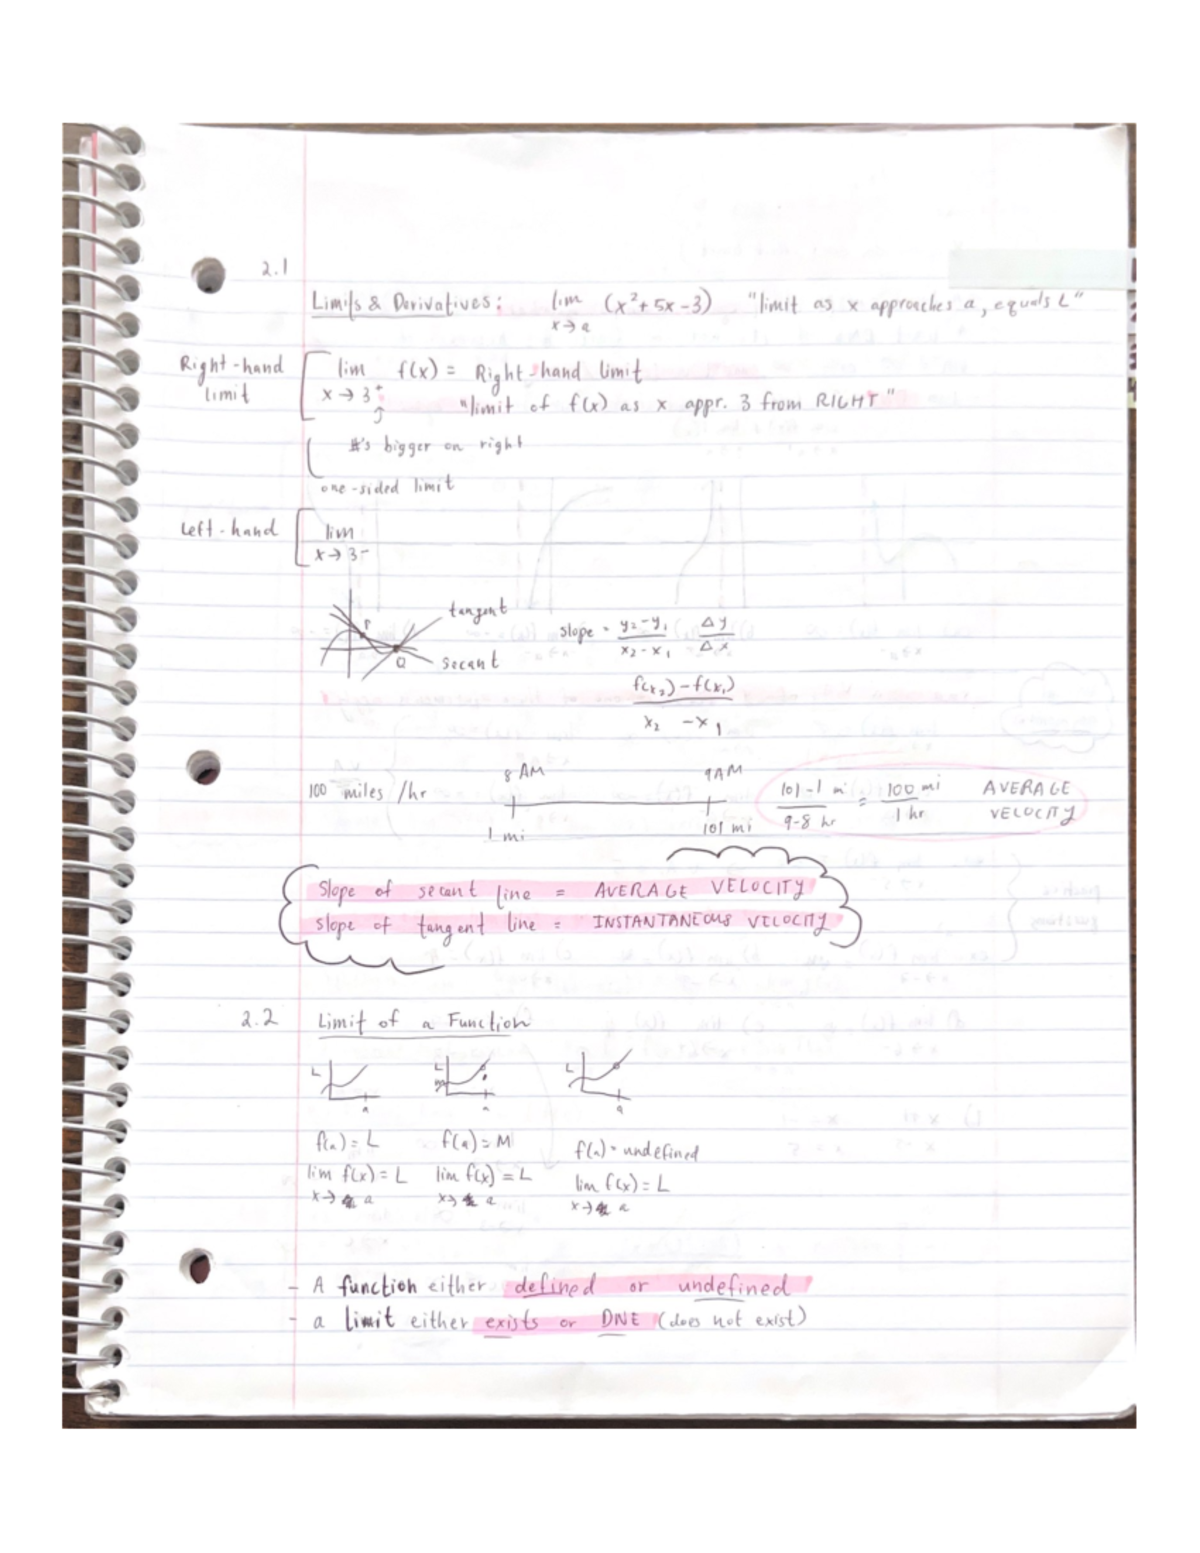 2.1
Limits & Derivatives: lim x→a (x²+5x-3) "limit as x approaches a, equals L"
Right-hand limit lim x→3⁺ f(x) = Right-hand limit
"limit of f(x) as x appr. 3 from RIGHT"
#'s bigger on right
one-sided limit
Left-hand lim x→3⁻
tangent
P
Q
secant
slope = y₂-y₁ / x₂-x₁ Δy / Δx
f(x₂)-f(x₁) / x₂ -x₁
100 miles /hr 8 AM 9AM
1 mi 101 mi
101-1 mi / 9-8 hr = 100 mi / 1 hr AVERAGE VELOCITY
Slope of secant line = AVERAGE VELOCITY
slope of tangent line = INSTANTANEOUS VELOCITY
2.2 Limit of a Function
L a L m a L a
f(a) = L f(a) = M f(a) = undefined
lim f(x) = L lim f(x) = L lim f(x) = L
x→ a x→ a x→ a
- A function either defined or undefined
- a limit either exists or DNE (does not exist)